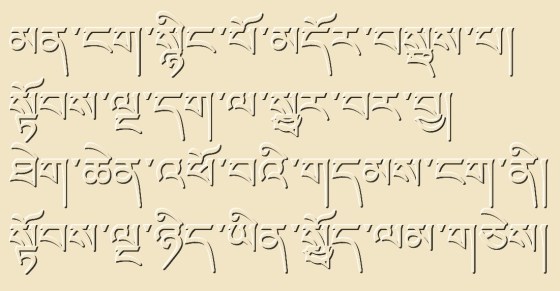 མན་ངག་སྙིང་པོ་མདོར་བསྡུས་པ།
སྟོབས་ལྔ་དག་ལ་སྦྱར་བར་བྱ།
ཐེག་ཆེན་འཕོ་བའི་གདམས་ངག་ནི།
སྟོབས་ལྔ་ཉིད་ཡིན་སྤྱོད་ལམ་གཅེས།